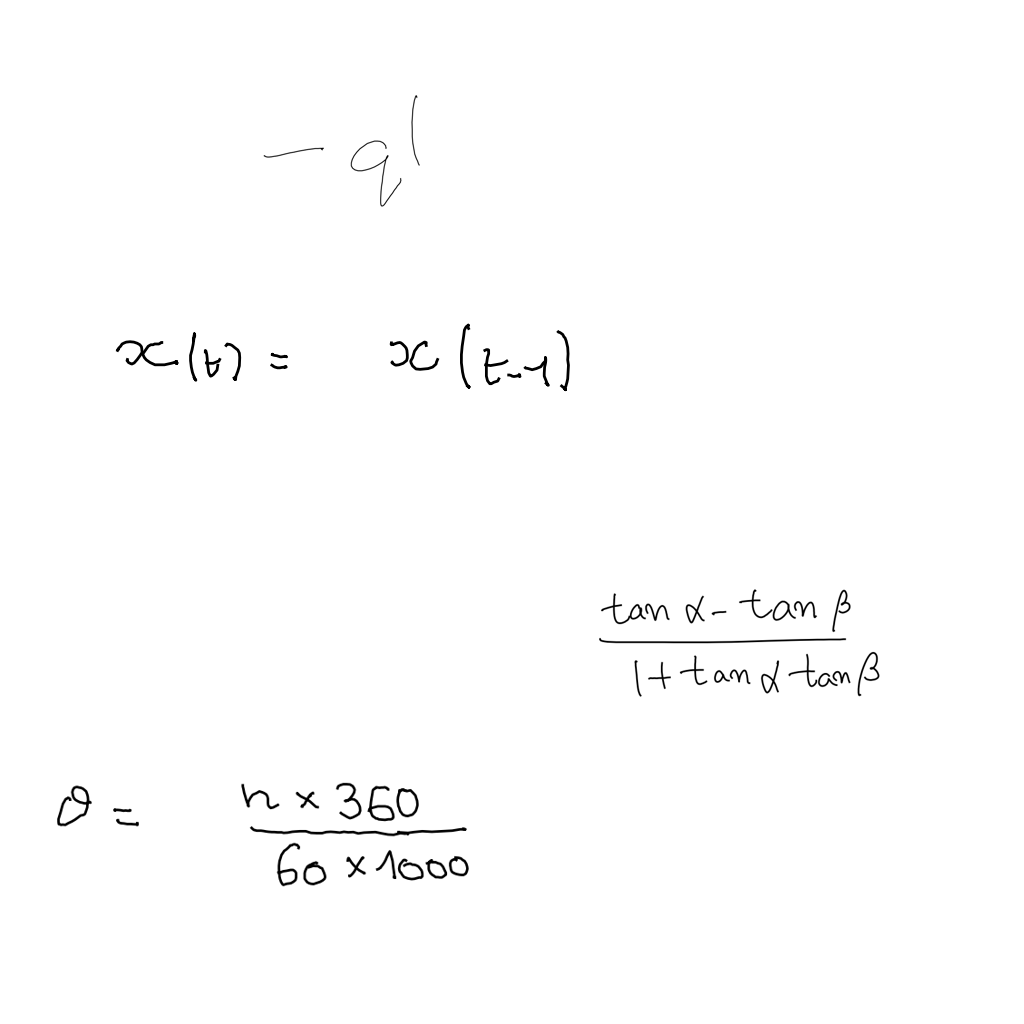 -q|
x(t) = x(t-1)
\frac{\tan α - \tan β}{1 + \tan α \tan β}
ϑ = \frac{n × 360}{60 × 1000}